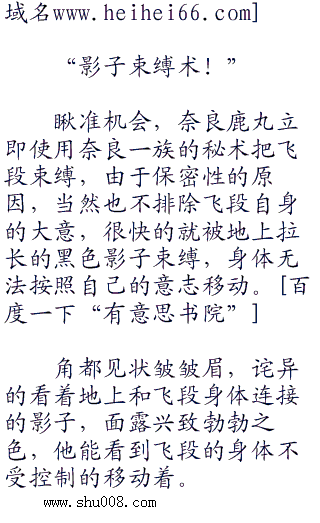 域名www.heihei66.com]
“影子束缚术！”
瞅准机会，奈良鹿丸立
即使用奈良一族的秘术把飞
段束缚，由于保密性的原
因，当然也不排除飞段自身
的大意，很快的就被地上拉
长的黑色影子束缚，身体无
法按照自己的意志移动。[百
度一下“有意思书院”]
角都见状皱皱眉，诧异
的看着地上和飞段身体连接
的影子，面露兴致勃勃之
色，他能看到飞段的身体不
受控制的移动着。
www.shu008.com